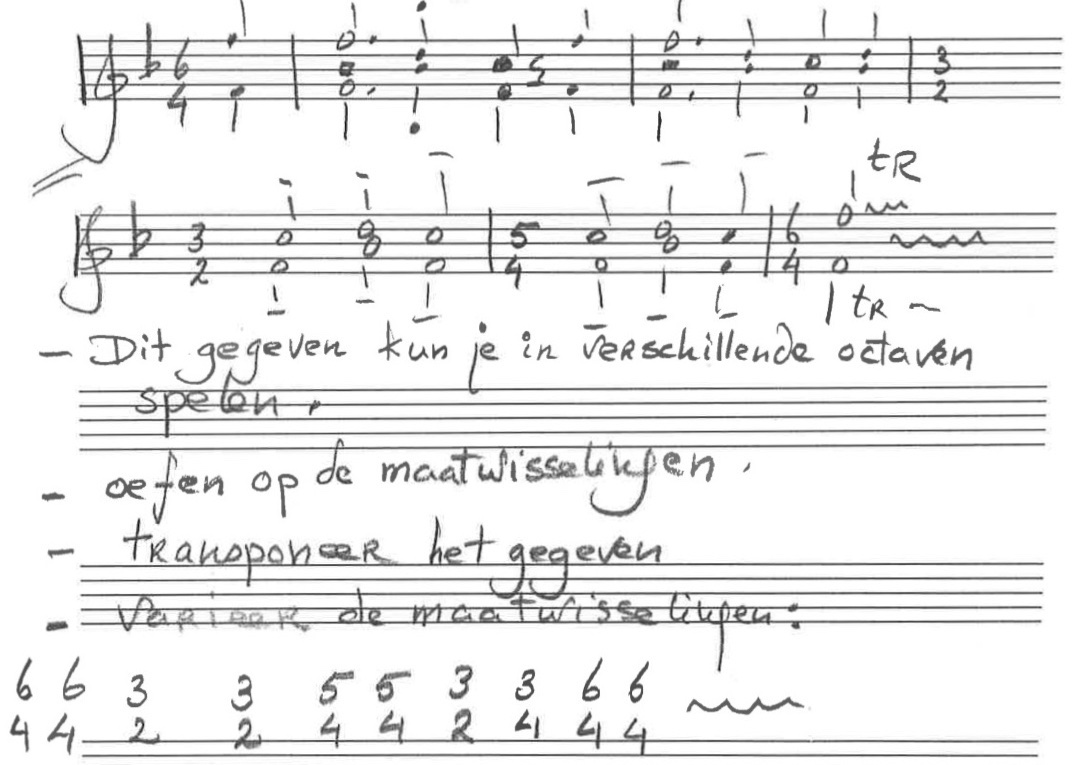 6
4
3
2
tR
3
2
5
4
6
4
tR
- Dit gegeven kun je in verschillende octaven
spelen.
- oefen op de maatwisselingen.
- transponeer het gegeven
- Varieer de maatwisselingen:
6 6 3 3 5 5 3 3 6 6
4 4 2 2 4 4 2 4 4 4